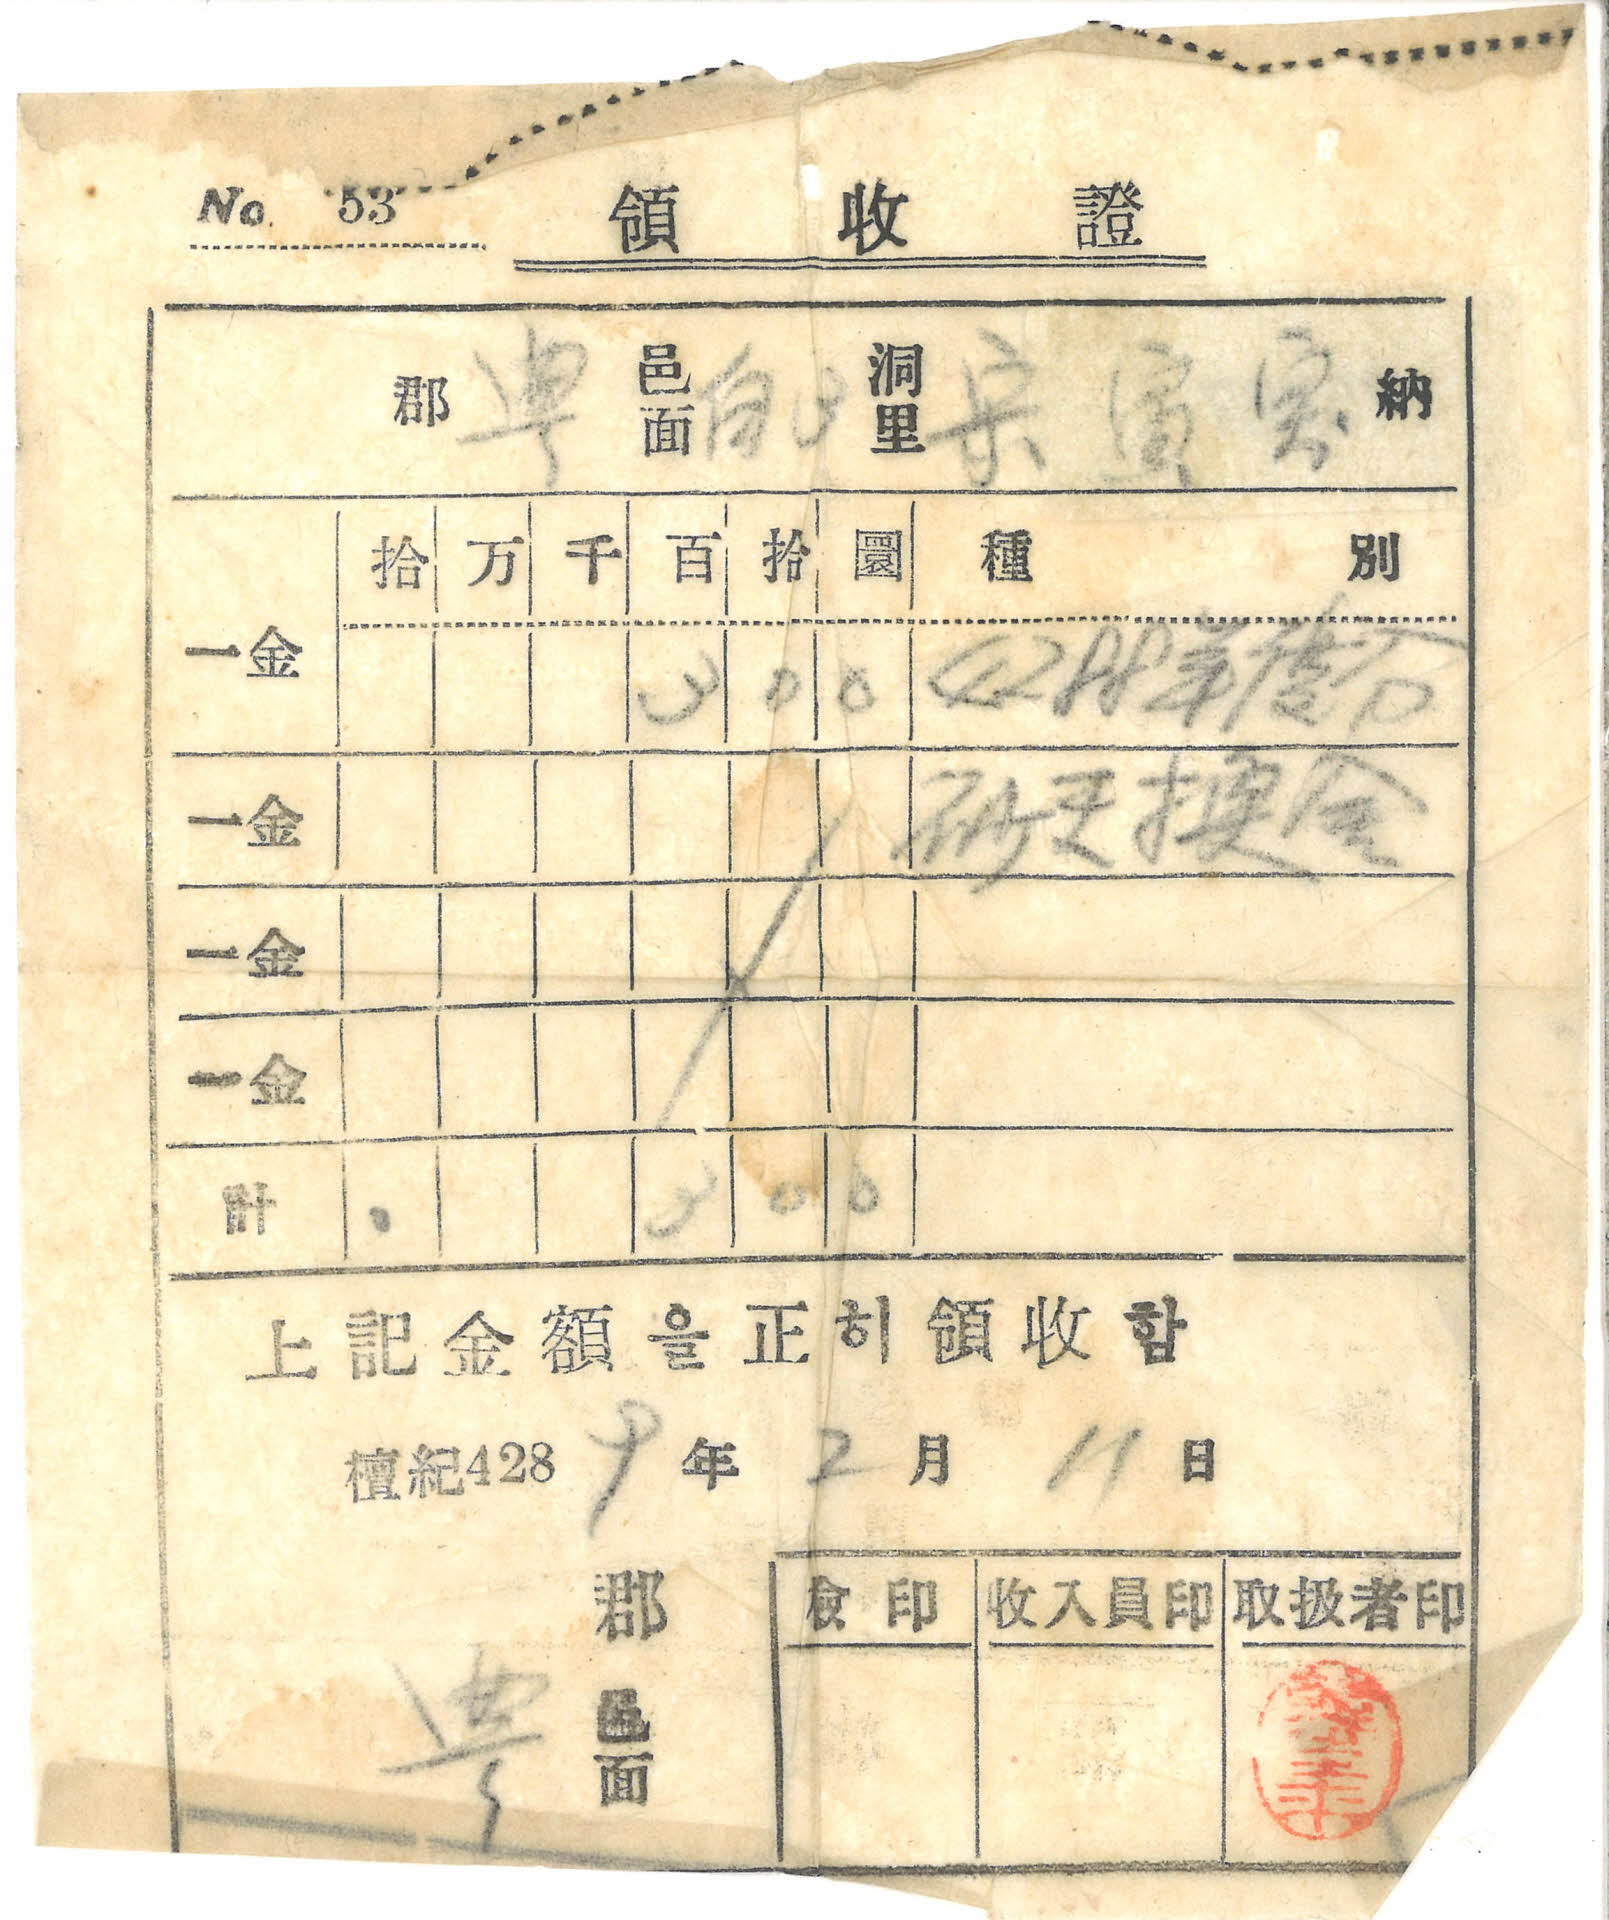 No. 53
領收證
郡 邑面 洞里 宋寅 納
拾 万 千 百 拾 圜 種別
一金 3 0 0 4288年度分
一金 換金
一金
一金
計 3 0 0
上記金額을正히領收함
檀紀4289年2月11日
郡
邑面
檢印 收入員印 取扱者印